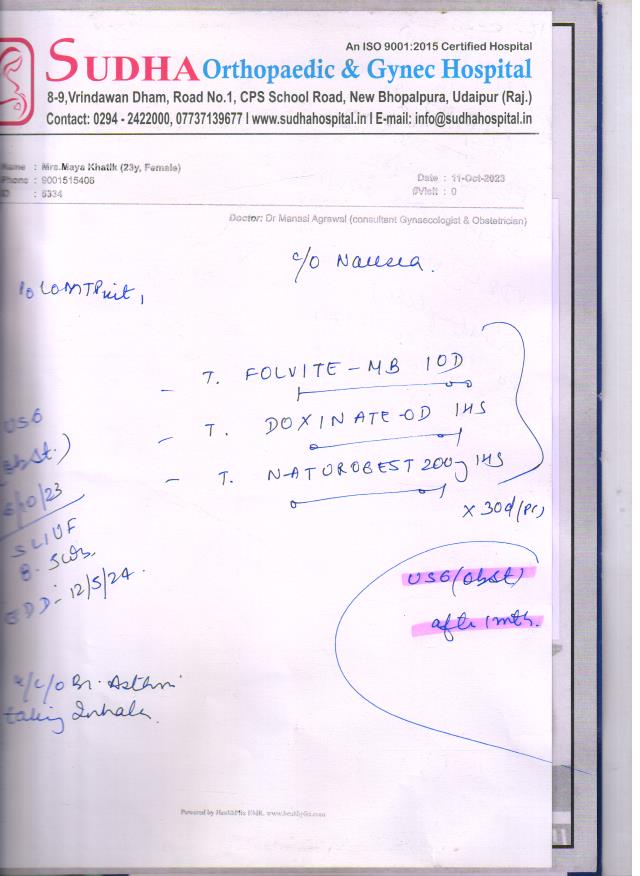 An ISO 9001:2015 Certified Hospital
SUDHA Orthopaedic & Gynec Hospital
8-9,Vrindawan Dham, Road No.1, CPS School Road, New Bhopalpura, Udaipur (Raj.)
Contact: 0294 - 2422000, 07737139677 I www.sudhahospital.in I E-mail: info@sudhahospital.in
Name : Mrs.Maya Khatik (23y, Female)
Phone : 9001515406
ID : 5334
Date : 11-Oct-2023
#Visit : 0
Doctor: Dr Manasi Agrawal (consultant Gynaecologist & Obstetrician)
c/o Nausea.
- T. FOLVITE-MB 1OD
- T. DOXINATE-OD 1HS
- T. NATUROBEST 200 1HS
x 30d
USG
(obst.)
/10/23
SLIUF
EDD- 12/5/24.
USG (obst)
after 1 mth.
c/o Br. Asthm
taking Inhale
Powered by HealthPlix EMR. www.healthplix.com